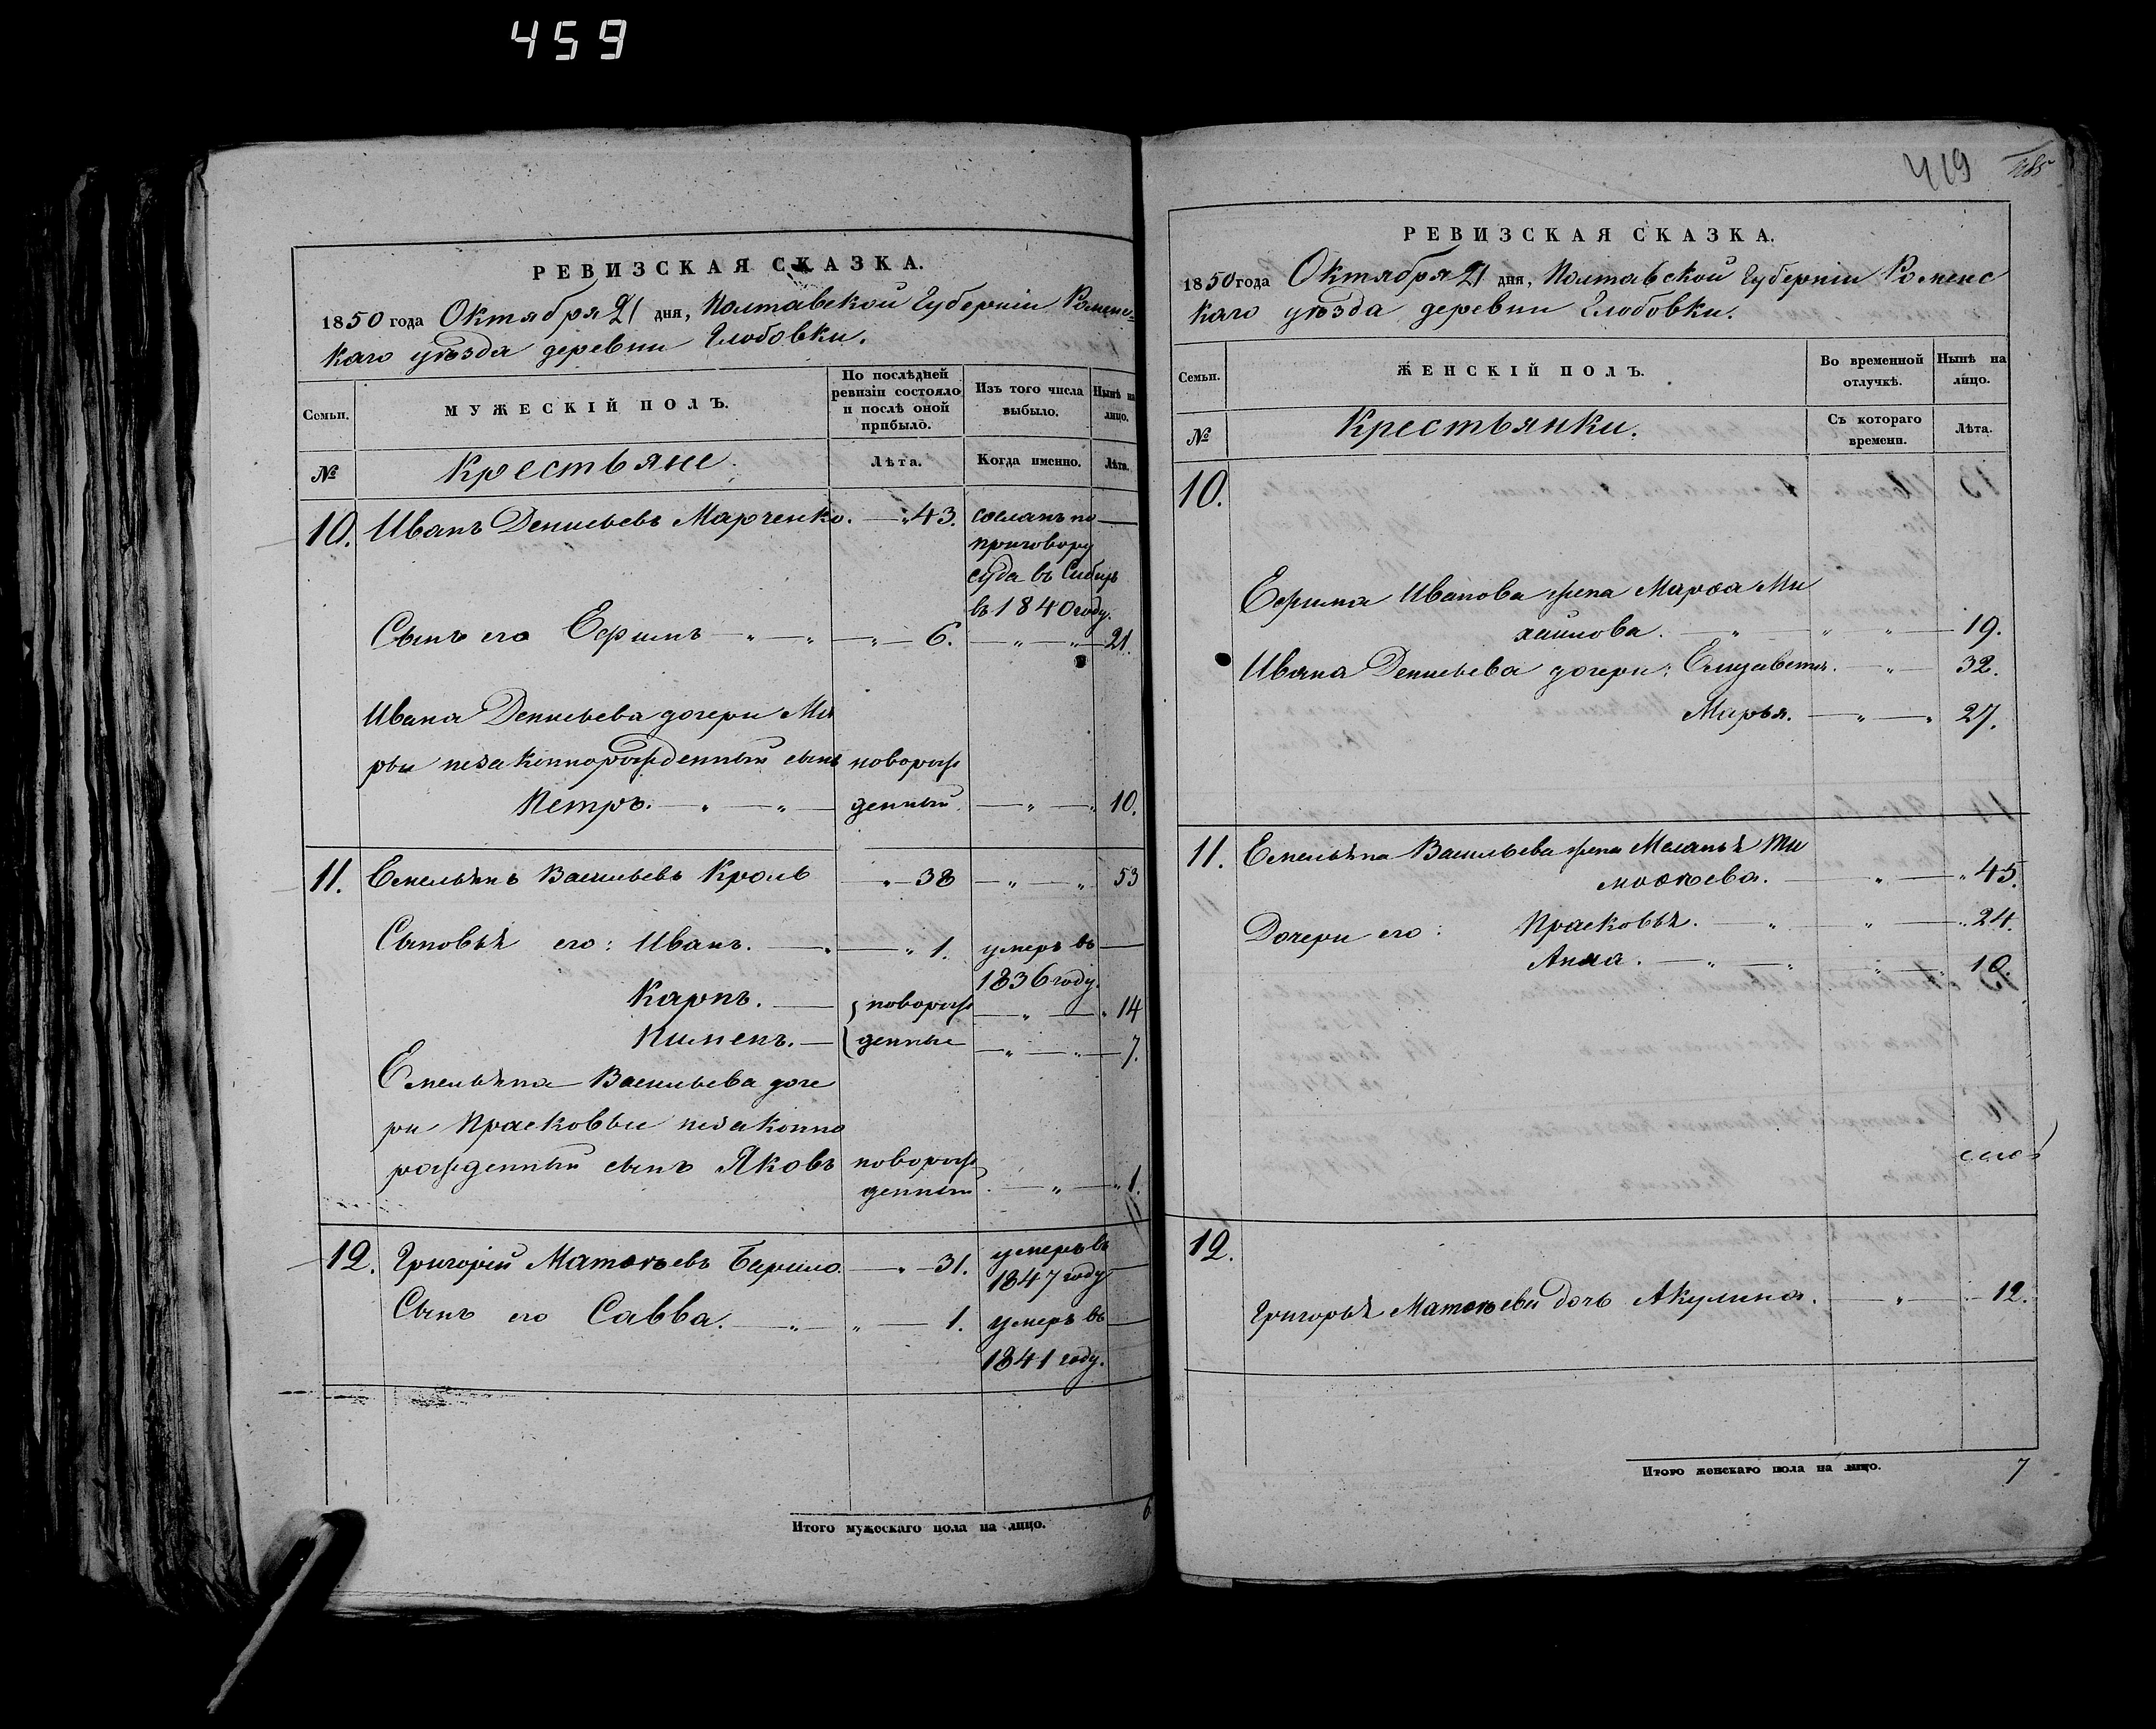 459
РЕВИЗСКАЯ СКАЗКА.
1850 года Октября 21 дня, Полтавской Губерніи Роменс-
каго уѣзда деревни Глобовки.
Семьи.
МУЖЕСКІЙ ПОЛЪ.
По послѣдней ревизіи состояло и послѣ оной прибыло.
Изъ того числа выбыло.
Нынѣ на лицо.
№
Крестьяне.
Лѣта.
Когда именно.
Лѣта.
10. Иванъ Денисьевъ Марченко. — " 43. сосланъ по —
приговору
суда въ Сибирь
въ 1840 году.
Сынъ его Ефимъ — " — " — " — 6. — " — " — 21.
Ивана Денисьева дочери Ма
рьи незаконнорожденный сынъ новорож
Петръ. — " — " — денный. — " — " 10.
11. Емельянъ Васильевъ Кроль — " — 38 — " — " 53
Сыновья его: Иванъ. — " — " 1. умеръ въ —
1836 году.
Карпъ. — новорож — " — " 14
Пименъ. — денные — " — " — 7.
Емельяна Васильева доче
ри Прасковьи незаконно
рожденный сынъ Яковъ новорож
денный. — " — " 1.
12. Григорій Матвѣевъ Барило — " — 31. умеръ въ —
1847 году
Сынъ его Савва. — " — " — 1. умеръ въ —
1841 году.
Итого мужескаго пола на лицо.
6
419
485
РЕВИЗСКАЯ СКАЗКА.
1850 года Октября 21 дня, Полтавской Губерніи Роменс
каго уѣзда деревни Глобовки.
Семьи.
ЖЕНСКІЙ ПОЛЪ.
Во временной отлучкѣ.
Нынѣ на лицо.
№
Крестьянки.
Съ котораго времени.
Лѣта.
10.
Ефима Иванова жена Марѳа Ми
хайлова. — " — " — " — 19.
Ивана Денисьева дочери: Елизавета. — " — 32.
Марья. — " — " 27.
11. Емельяна Васильева жена Меланья Ти
моѳѣева. — " — " 45.
Дочери его: Прасковья. — " — " — " 24.
Анна. — " — " — " — " 10.
12.
Григорья Матвѣева дочь Акулина. — " — 12.
Итого женскаго пола на лицо.
7